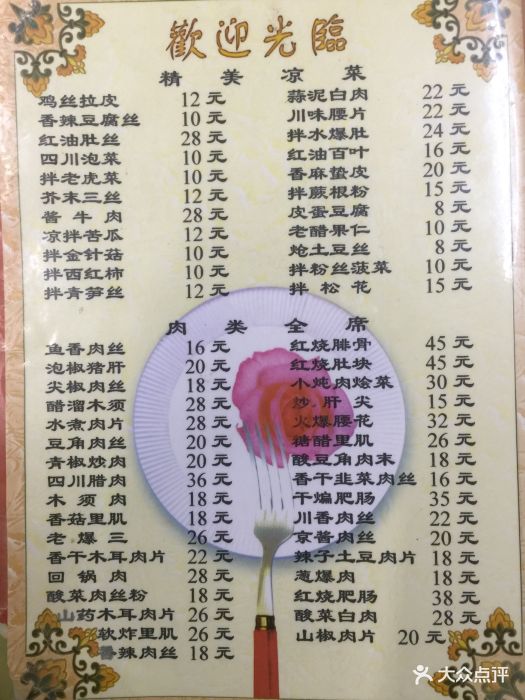 歡迎光臨
精美凉菜
鸡丝拉皮 12元
香辣豆腐丝 10元
红油肚丝 28元
四川泡菜 10元
拌老虎菜 10元
芥末三丝 12元
酱牛肉 28元
凉拌苦瓜 12元
拌金针菇 10元
拌西红柿 10元
拌青笋丝 12元
蒜泥白肉 22元
川味腰片 22元
拌水爆肚 24元
红油百叶 16元
香麻蛰皮 20元
拌蕨根粉 15元
皮蛋豆腐 8元
老醋果仁 10元
炝土豆丝 8元
拌粉丝菠菜 10元
拌松花 15元
肉类全席
鱼香肉丝 16元
泡椒猪肝 20元
尖椒肉丝 18元
醋溜木须 28元
水煮肉片 28元
豆角肉丝 20元
青椒炒肉 20元
四川腊肉 36元
木须肉 18元
香菇里肌 18元
老爆三 26元
香干木耳肉片 22元
回锅肉 28元
酸菜肉丝粉 18元
山药木耳肉片 26元
软炸里肌 26元
香辣肉丝 18元
红烧腓骨 45元
红烧肚块 45元
小炖肉烩菜 30元
炒肝尖 15元
火爆腰花 32元
糖醋里肌 26元
酸豆角肉末 18元
香干韭菜肉丝 16元
干煸肥肠 35元
川香肉丝 22元
京酱肉丝 20元
辣子土豆肉片 18元
葱爆肉 18元
红烧肥肠 38元
酸菜白肉 28元
山椒肉片 20元
大众点评